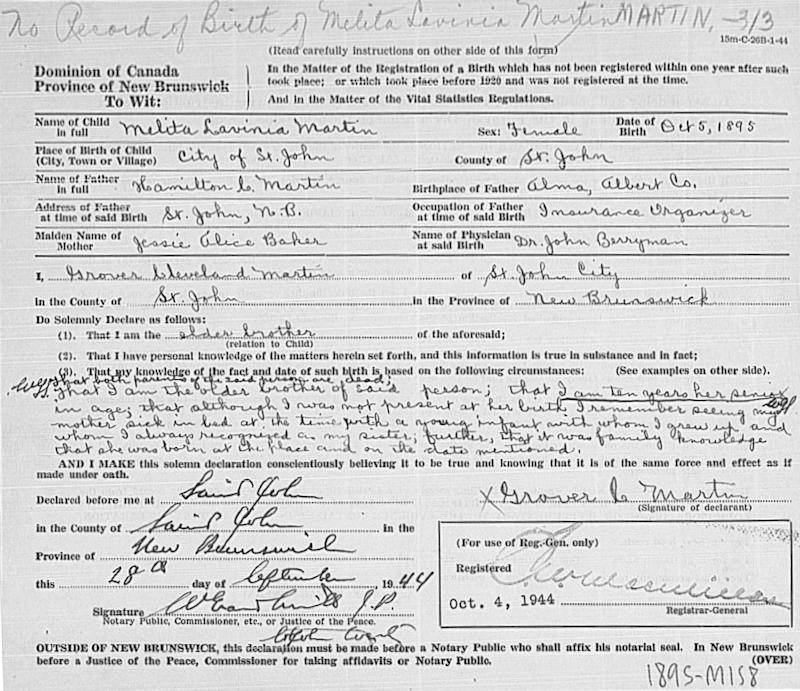 No Record of Birth of Melita Lavinia Martin MARTIN, -3/3
15m-C-26B-1-44
(Read carefully instructions on other side of this form)
Dominion of Canada
Province of New Brunswick
To Wit:
In the Matter of the Registration of a Birth which has not been registered within one year after such took place; or which took place before 1920 and was not registered at the time.
And in the Matter of the Vital Statistics Regulations.
Name of Child in full Melita Lavinia Martin Sex: Female Date of Birth Oct 5, 1895
Place of Birth of Child (City, Town or Village) City of St. John County of St. John
Name of Father in full Hamilton C. Martin Birthplace of Father Alma, Albert Co.
Address of Father at time of said Birth St. John, N.B. Occupation of Father at time of said Birth Insurance Organizer
Maiden Name of Mother Jessie Alice Baker Name of Physician at said Birth Dr. John Berryman
I, Grover Cleveland Martin of St. John City
in the County of St. John in the Province of New Brunswick
Do Solemnly Declare as follows:
(1). That I am the older brother of the aforesaid;
(relation to Child)
(2). That I have personal knowledge of the matters herein set forth, and this information is true in substance and in fact;
(3). That my knowledge of the fact and date of such birth is based on the following circumstances: (See examples on other side).
That both parents of the said person are dead;
That I am the older brother of said person; that I am ten years her senior
in age; that although I was not present at her birth I remember seeing my
mother sick in bed at the time with a young infant with whom I grew up and
whom I always recognized as my sister; further, that it was family knowledge
that she was born at the place and on the date mentioned.
AND I MAKE this solemn declaration conscientiously believing it to be true and knowing that it is of the same force and effect as if
made under oath.
Declared before me at Saint John
X Grover C. Martin
(Signature of declarant)
in the County of Saint John in the
Province of New Brunswick
this 28th day of September 1944
Signature J.P.
Notary Public, Commissioner, etc., or Justice of the Peace.
(For use of Reg.-Gen. only)
Registered
Oct. 4, 1944
Registrar-General
OUTSIDE OF NEW BRUNSWICK, this declaration must be made before a Notary Public who shall affix his notarial seal. In New Brunswick
before a Justice of the Peace, Commissioner for taking affidavits or Notary Public. (OVER)
1895-M158